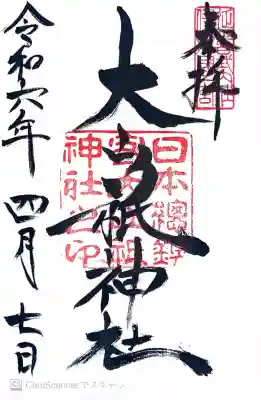 奉拝
大山祇神社
日本總鎮
神社之印
令和六年 四月 七日
CS CamScannerでスキャン